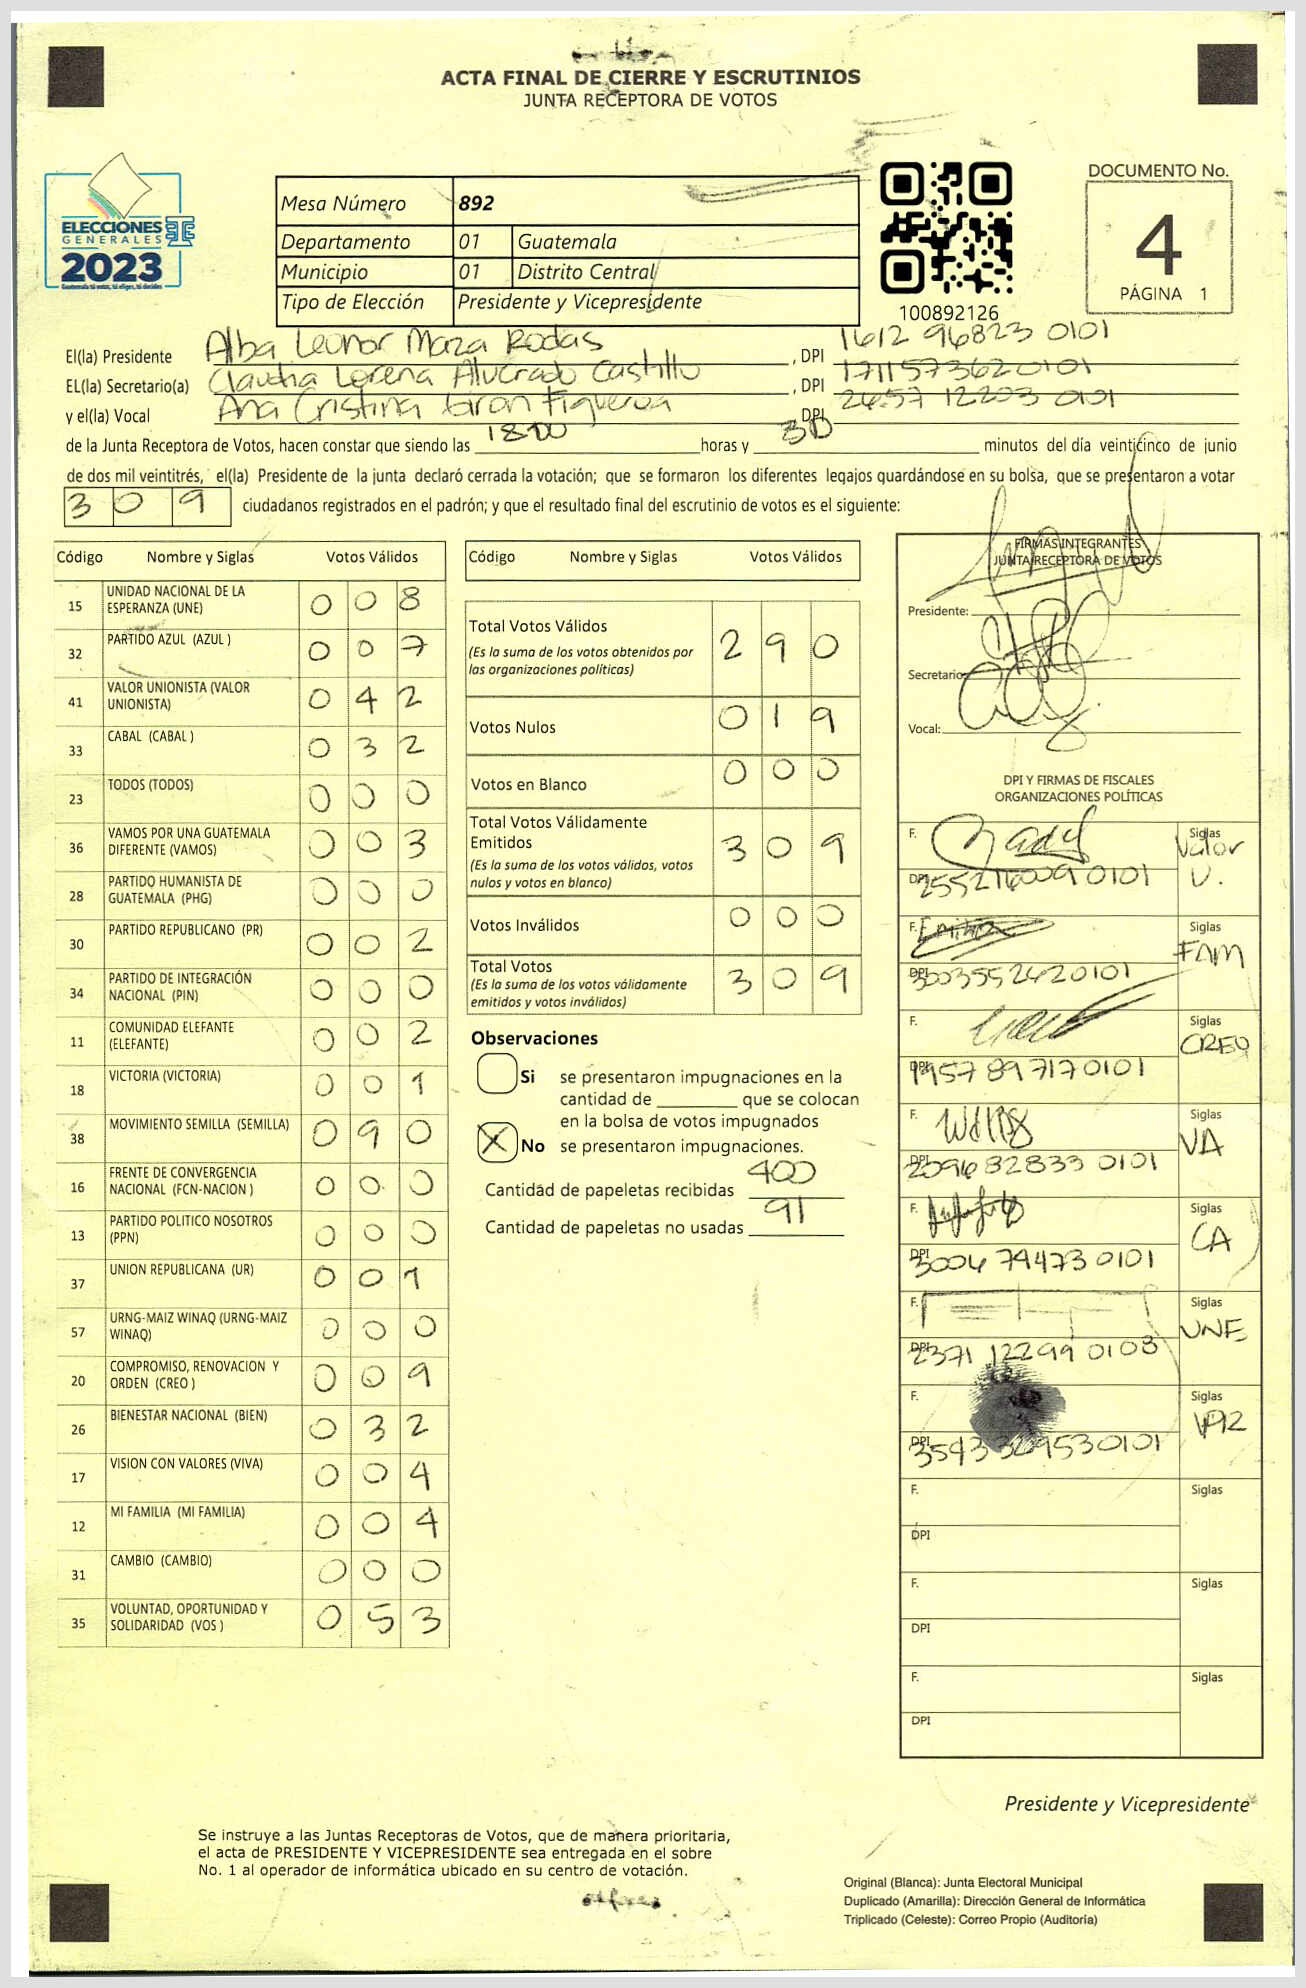 ACTA FINAL DE CIERRE Y ESCRUTINIOS
JUNTA RECEPTORA DE VOTOS
ELECCIONES
GENERALES
2023
Guatemala tú votas, tú eliges, tú decides
Mesa Número 892
Departamento 01 Guatemala
Municipio 01 Distrito Central
Tipo de Elección Presidente y Vicepresidente
100892126
DOCUMENTO No.
4
PÁGINA 1
El(la) Presidente Alba Leonor Maza Rodas , DPI 1612 96823 0101
EL(la) Secretario(a) Claudia Lorena Alvarado Castillo , DPI 1711573620101
y el(la) Vocal Ana Cristina Giron Figueroa DPI 2657 12203 0101
de la Junta Receptora de Votos, hacen constar que siendo las 18:00 horas y 30 minutos del día veinticinco de junio
de dos mil veintitrés, el(la) Presidente de la junta declaró cerrada la votación; que se formaron los diferentes legajos guardándose en su bolsa, que se presentaron a votar
309 ciudadanos registrados en el padrón; y que el resultado final del escrutinio de votos es el siguiente:
Código Nombre y Siglas Votos Válidos
15 UNIDAD NACIONAL DE LA ESPERANZA (UNE) 008
32 PARTIDO AZUL (AZUL ) 007
41 VALOR UNIONISTA (VALOR UNIONISTA) 042
33 CABAL (CABAL ) 032
23 TODOS (TODOS) 000
36 VAMOS POR UNA GUATEMALA DIFERENTE (VAMOS) 003
28 PARTIDO HUMANISTA DE GUATEMALA (PHG) 000
30 PARTIDO REPUBLICANO (PR) 002
34 PARTIDO DE INTEGRACIÓN NACIONAL (PIN) 000
11 COMUNIDAD ELEFANTE (ELEFANTE) 002
18 VICTORIA (VICTORIA) 001
38 MOVIMIENTO SEMILLA (SEMILLA) 090
16 FRENTE DE CONVERGENCIA NACIONAL (FCN-NACION ) 000
13 PARTIDO POLITICO NOSOTROS (PPN) 000
37 UNION REPUBLICANA (UR) 001
57 URNG-MAIZ WINAQ (URNG-MAIZ WINAQ) 000
20 COMPROMISO, RENOVACION Y ORDEN (CREO ) 009
26 BIENESTAR NACIONAL (BIEN) 032
17 VISION CON VALORES (VIVA) 004
12 MI FAMILIA (MI FAMILIA) 004
31 CAMBIO (CAMBIO) 000
35 VOLUNTAD, OPORTUNIDAD Y SOLIDARIDAD (VOS ) 053
Código Nombre y Siglas Votos Válidos
Total Votos Válidos 290
(Es la suma de los votos obtenidos por
las organizaciones políticas)
Votos Nulos 019
Votos en Blanco 000
Total Votos Válidamente
Emitidos 309
(Es la suma de los votos válidos, votos
nulos y votos en blanco)
Votos Inválidos 000
Total Votos 309
(Es la suma de los votos válidamente
emitidos y votos inválidos)
Observaciones
Si se presentaron impugnaciones en la
cantidad de ________ que se colocan
en la bolsa de votos impugnados
X No se presentaron impugnaciones.
Cantidad de papeletas recibidas 400
Cantidad de papeletas no usadas 91
FIRMAS INTEGRANTES
JUNTA RECEPTORA DE VOTOS
Presidente:
Secretario:
Vocal:
DPI Y FIRMAS DE FISCALES
ORGANIZACIONES POLÍTICAS
F. Siglas Valor U.
DPI
F. Siglas FAM
DPI 3003552620101
F. Siglas CREO
DPI 1957 89717 0101
F. Siglas VA
DPI 2096 82833 0101
F. Siglas CA
DPI 3004 79473 0101
F. Siglas UNE
DPI 2371 12299 0103
F. Siglas
DPI
F. Siglas
DPI
F. Siglas
DPI
F. Siglas
DPI
Presidente y Vicepresidente
Se instruye a las Juntas Receptoras de Votos, que de manera prioritaria,
el acta de PRESIDENTE Y VICEPRESIDENTE sea entregada en el sobre
No. 1 al operador de informática ubicado en su centro de votación.
Original (Blanca): Junta Electoral Municipal
Duplicado (Amarilla): Dirección General de Informática
Triplicado (Celeste): Correo Propio (Auditoría)